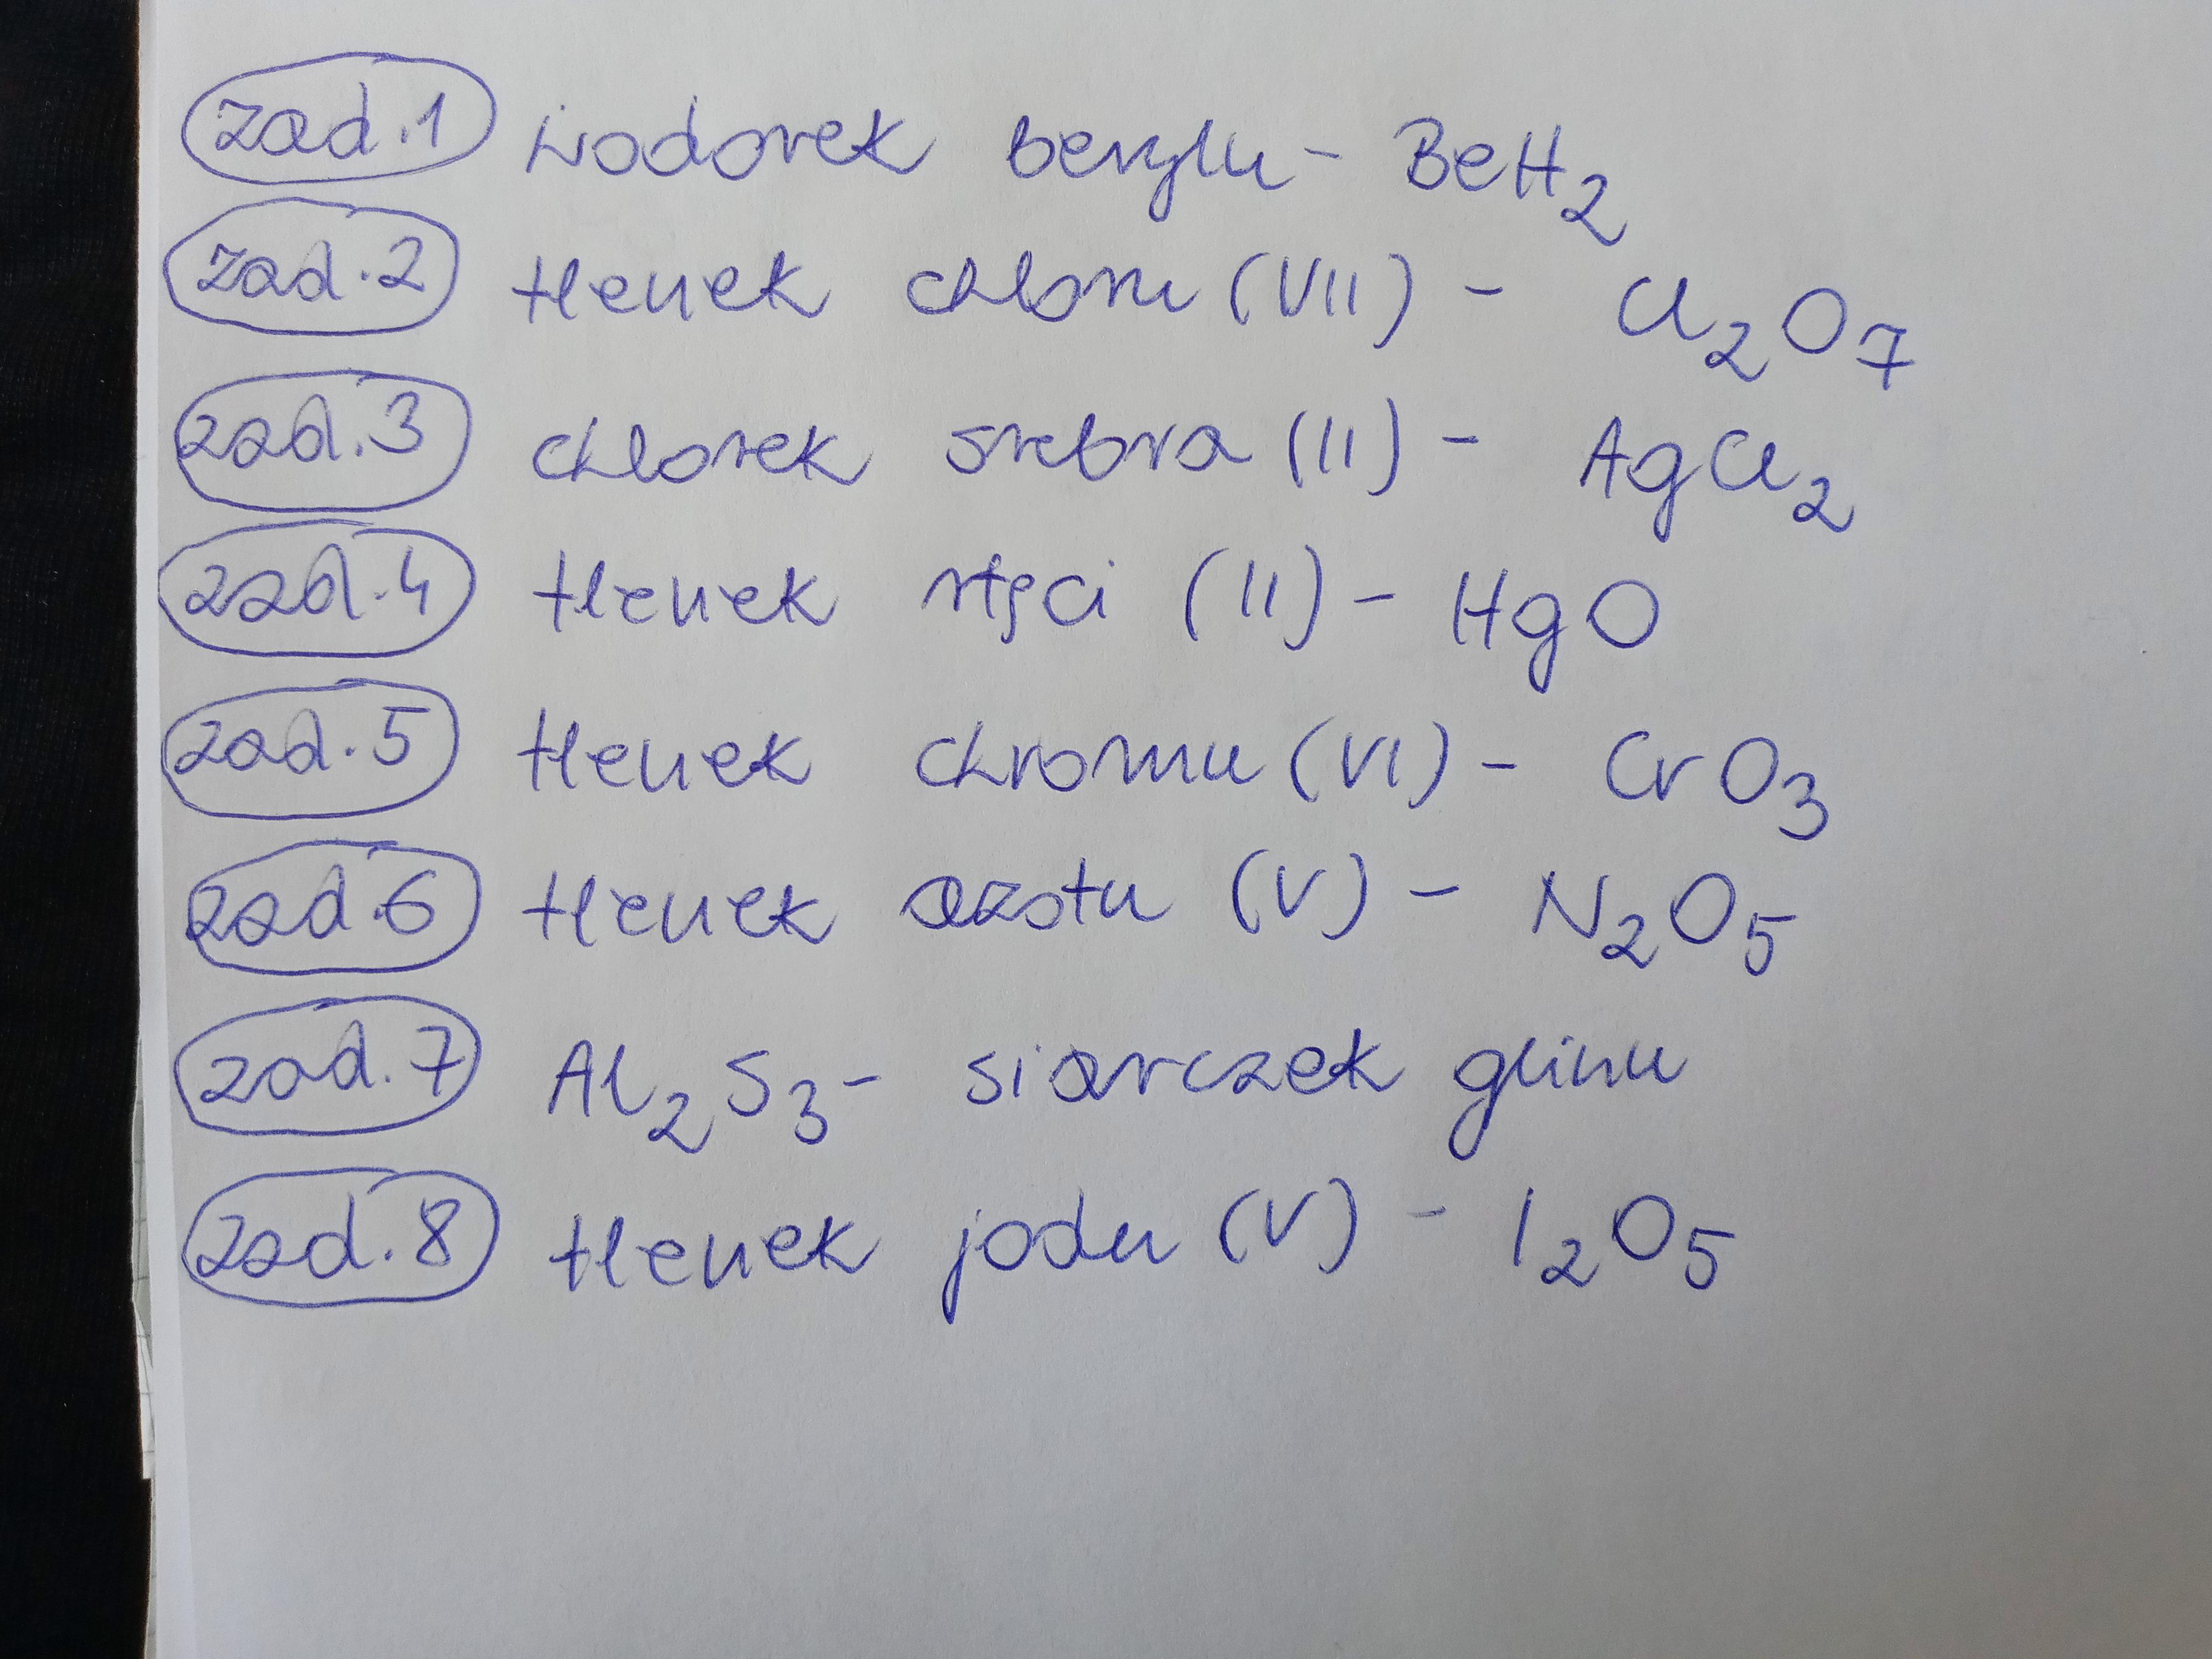 zad.1 wodorek berylu - BeH₂
zad.2 tlenek chloru (VII) - Cl₂O₇
zad.3 chlorek srebra (II) - AgCl₂
zad.4 tlenek rtęci (II) - HgO
zad.5 tlenek chromu (VI) - CrO₃
zad.6 tlenek azotu (V) - N₂O₅
zad.7 Al₂S₃ - siarczek glinu
zad.8 tlenek jodu (V) - I₂O₅